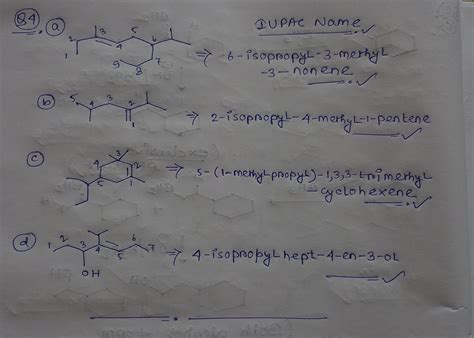 Q4
IUPAC Name
a
1 2 3 4 5 6 7 8
⇒ 6-isopropyl-3-methyl
-3-nonene
b
5 4 3 2 1
⇒ 2-isopropyl-4-methyl-1-pentene
c
3 4 2 5 1
⇒ 5-(1-methylpropyl)-1,3,3-trimethyl
-cyclohexene
d
1 2 3 4 5 6 7
OH
⇒ 4-isopropyl hept-4-en-3-ol